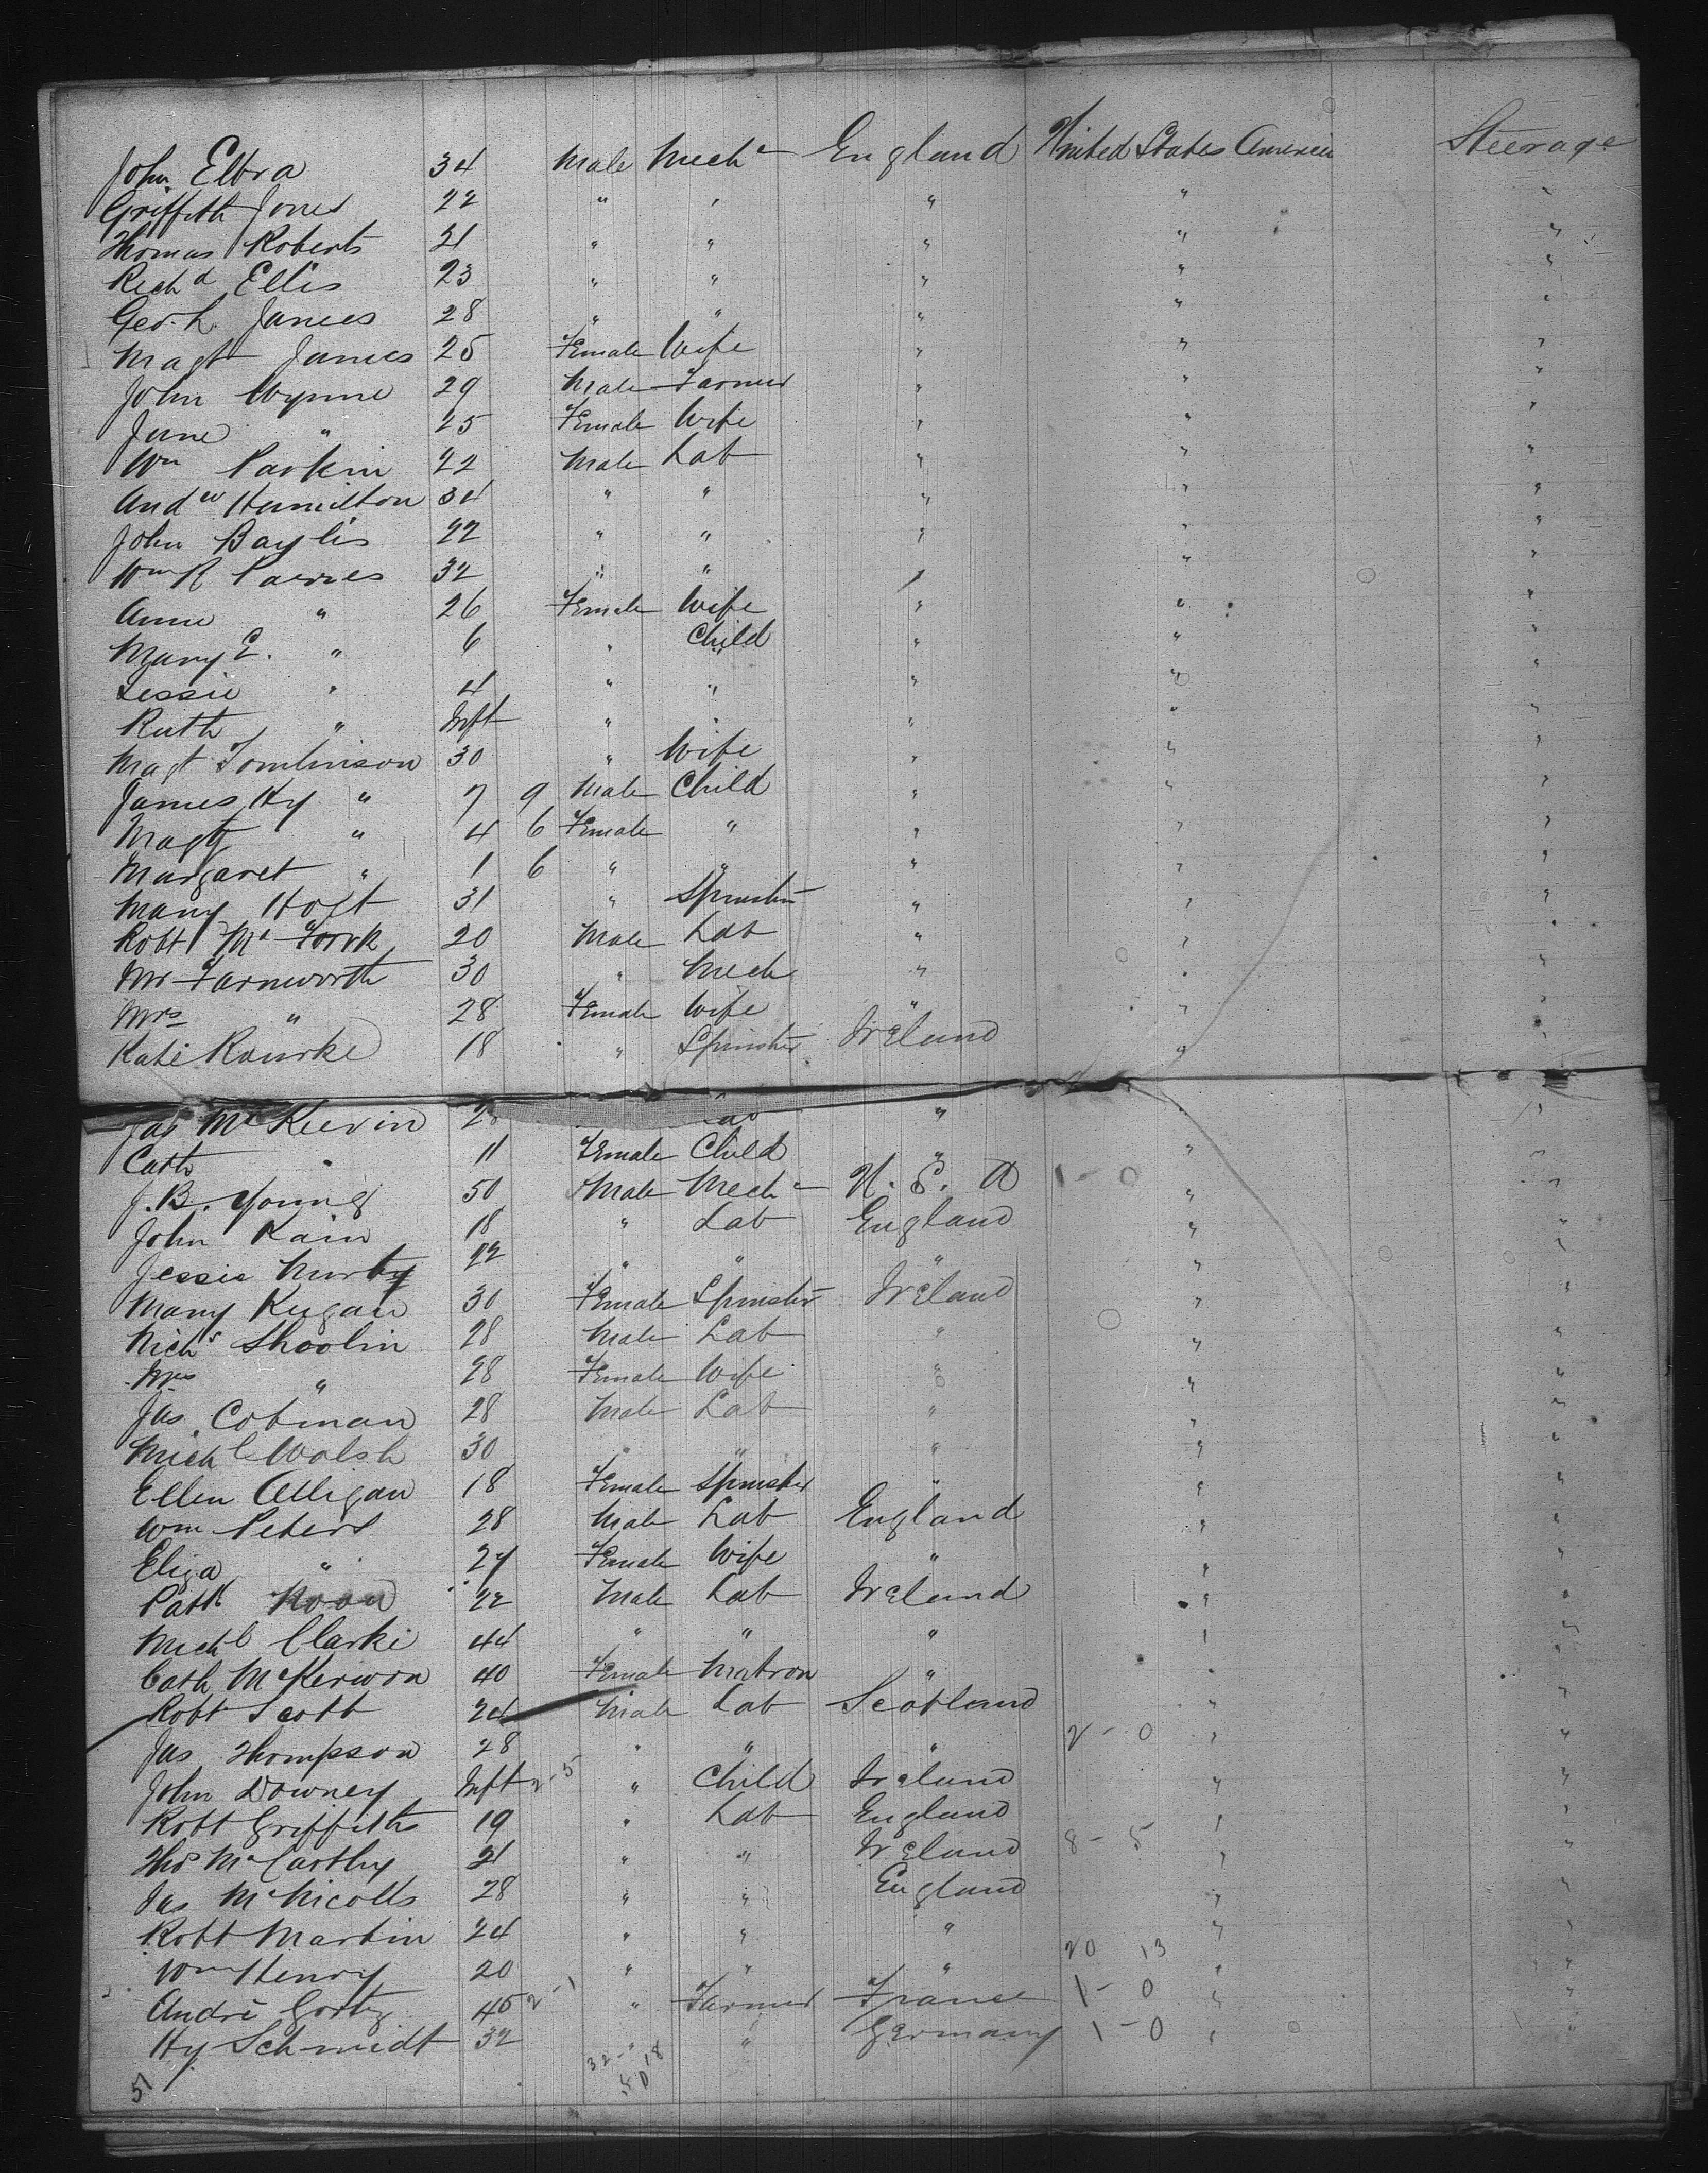 John Eltra 34 Male Mech England United States America Steerage
Griffith Jones 22 " " " " "
Thomas Roberts 21 " " " " "
Richd Ellis 23 " " " " "
Geo. L. James 28 " " " " "
Magt James 25 Female Wife " " "
John Wynne 29 Male Farmer " " "
Jane " 25 Female Wife " " "
Wm Parkin 22 Male Lab " " "
Andw Hamilton 34 " " " " "
John Baylis 22 " " " " "
Wm R 32 " " " " "
Anne " 26 Female Wife " " "
Mary E. " 6 " Child " " "
Lessie " 4 " " " " "
Ruth " Inft " " " " "
Magt Tomlinson 30 " Wife " " "
James Hy " 7 9 Male Child " " "
" 4 6 Female " " " "
Margaret " 1 6 " " " " "
Mary Holt 31 " Spinster " " "
Robt Mc 20 Male Lab " " "
Mr Farnworth 30 " Mech " " "
Mrs " 28 Female Wife " " "
Kate Rourke 18 " Spinster Ireland " "
Jas McKeevin 28 Lab " " "
Cath " 11 Female Child " " "
J. B. Young 50 Male Mech U. S. A 1 - 0 " "
John Kain 18 " Lab England " "
Jessie Murby 22 " " " " "
Mary Kegan 30 Female Spinster Ireland " "
Nichs Shoolin 28 Male Lab " " "
Mrs " 28 Female Wife " " "
Jas Cotman 28 Male Lab " " "
Michl Walsh 30 " " " " "
Ellen Alligan 18 Female Spinster " " "
Wm Peters 28 Male Lab England " "
Eliza " 27 Female Wife " " "
Patk 22 Male Lab Ireland " "
Michl Clarke 44 " " " " "
Cath McKerwon 40 Female Matron " " "
Robt Scott 24 Male Lab Scotland " "
Jas Thompson 28 " " " 2 - 0 " "
John Downey Inft 2-5 " Child Ireland " "
Robt Griffiths 19 " Lab England " "
Thos McCarthy 21 " " Ireland 8 - 5 " "
Jas McNicolls 28 " " England " "
Robt Martin 24 " " " " "
Wm Henry 20 " " " 20 13 " "
André Gortz 45 2-1 " Farmer France 1 - 0 " "
Hy Schmidt 32 " " Germany 1 - 0 " "
51 32 18